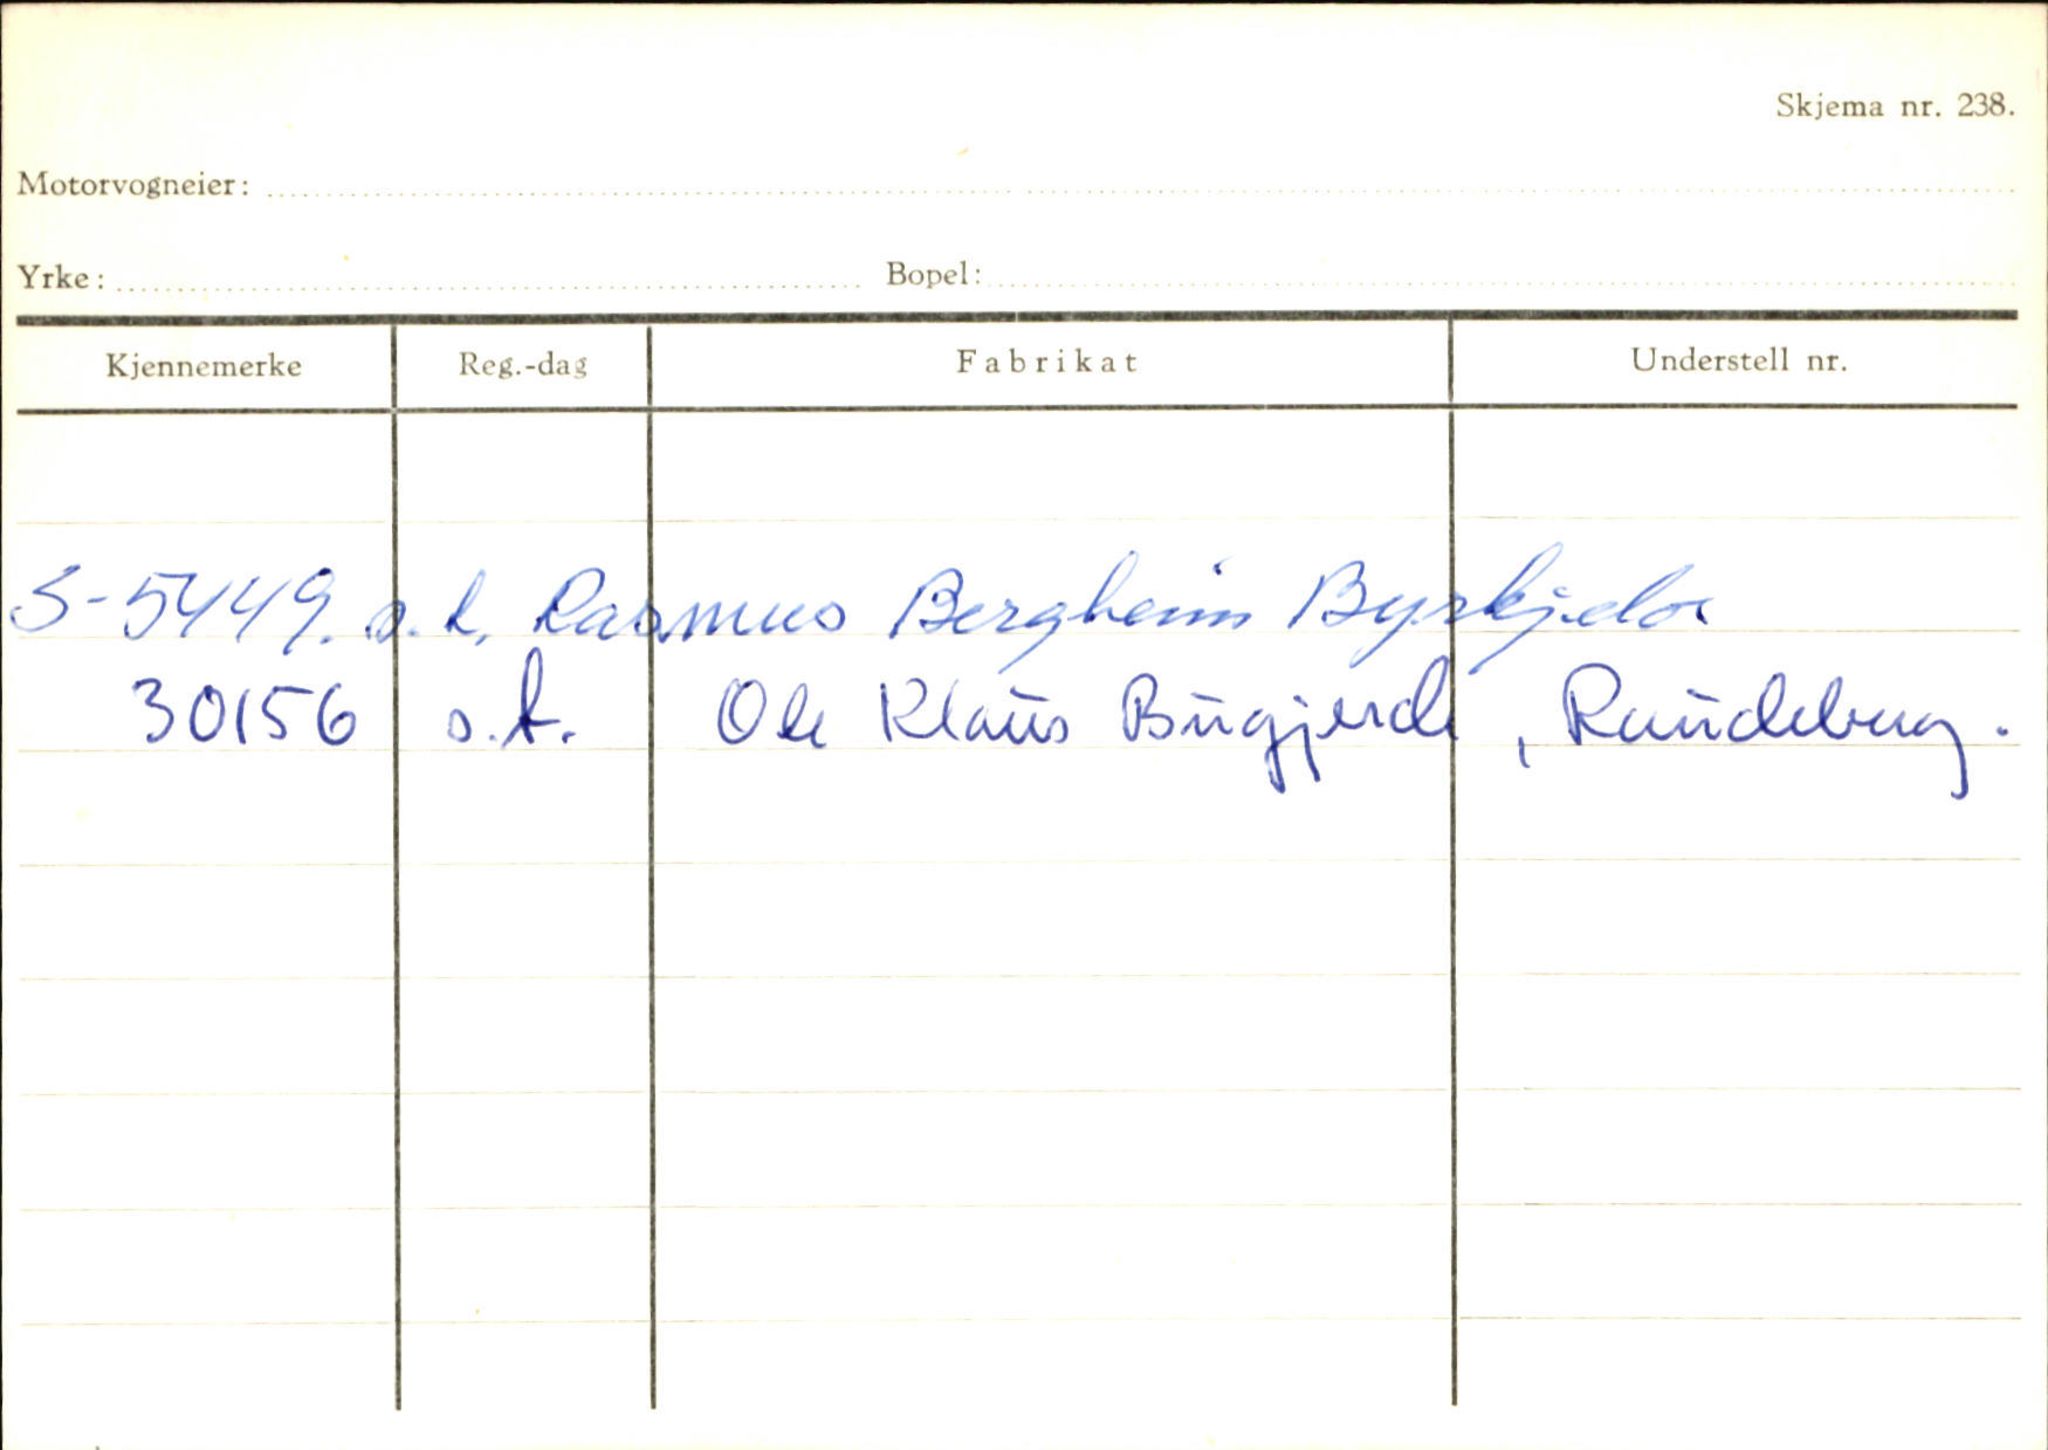 Skjema nr. 238.
Motorvogneier:
Yrke: Bopel:
Kjennemerke Reg.-dag Fabrikat Understell nr.
S-5449. s.t. Rasmus Bergheim Byrkjelo
30156 s.t. Ole Klaus Bugjerde, Raudeberg.